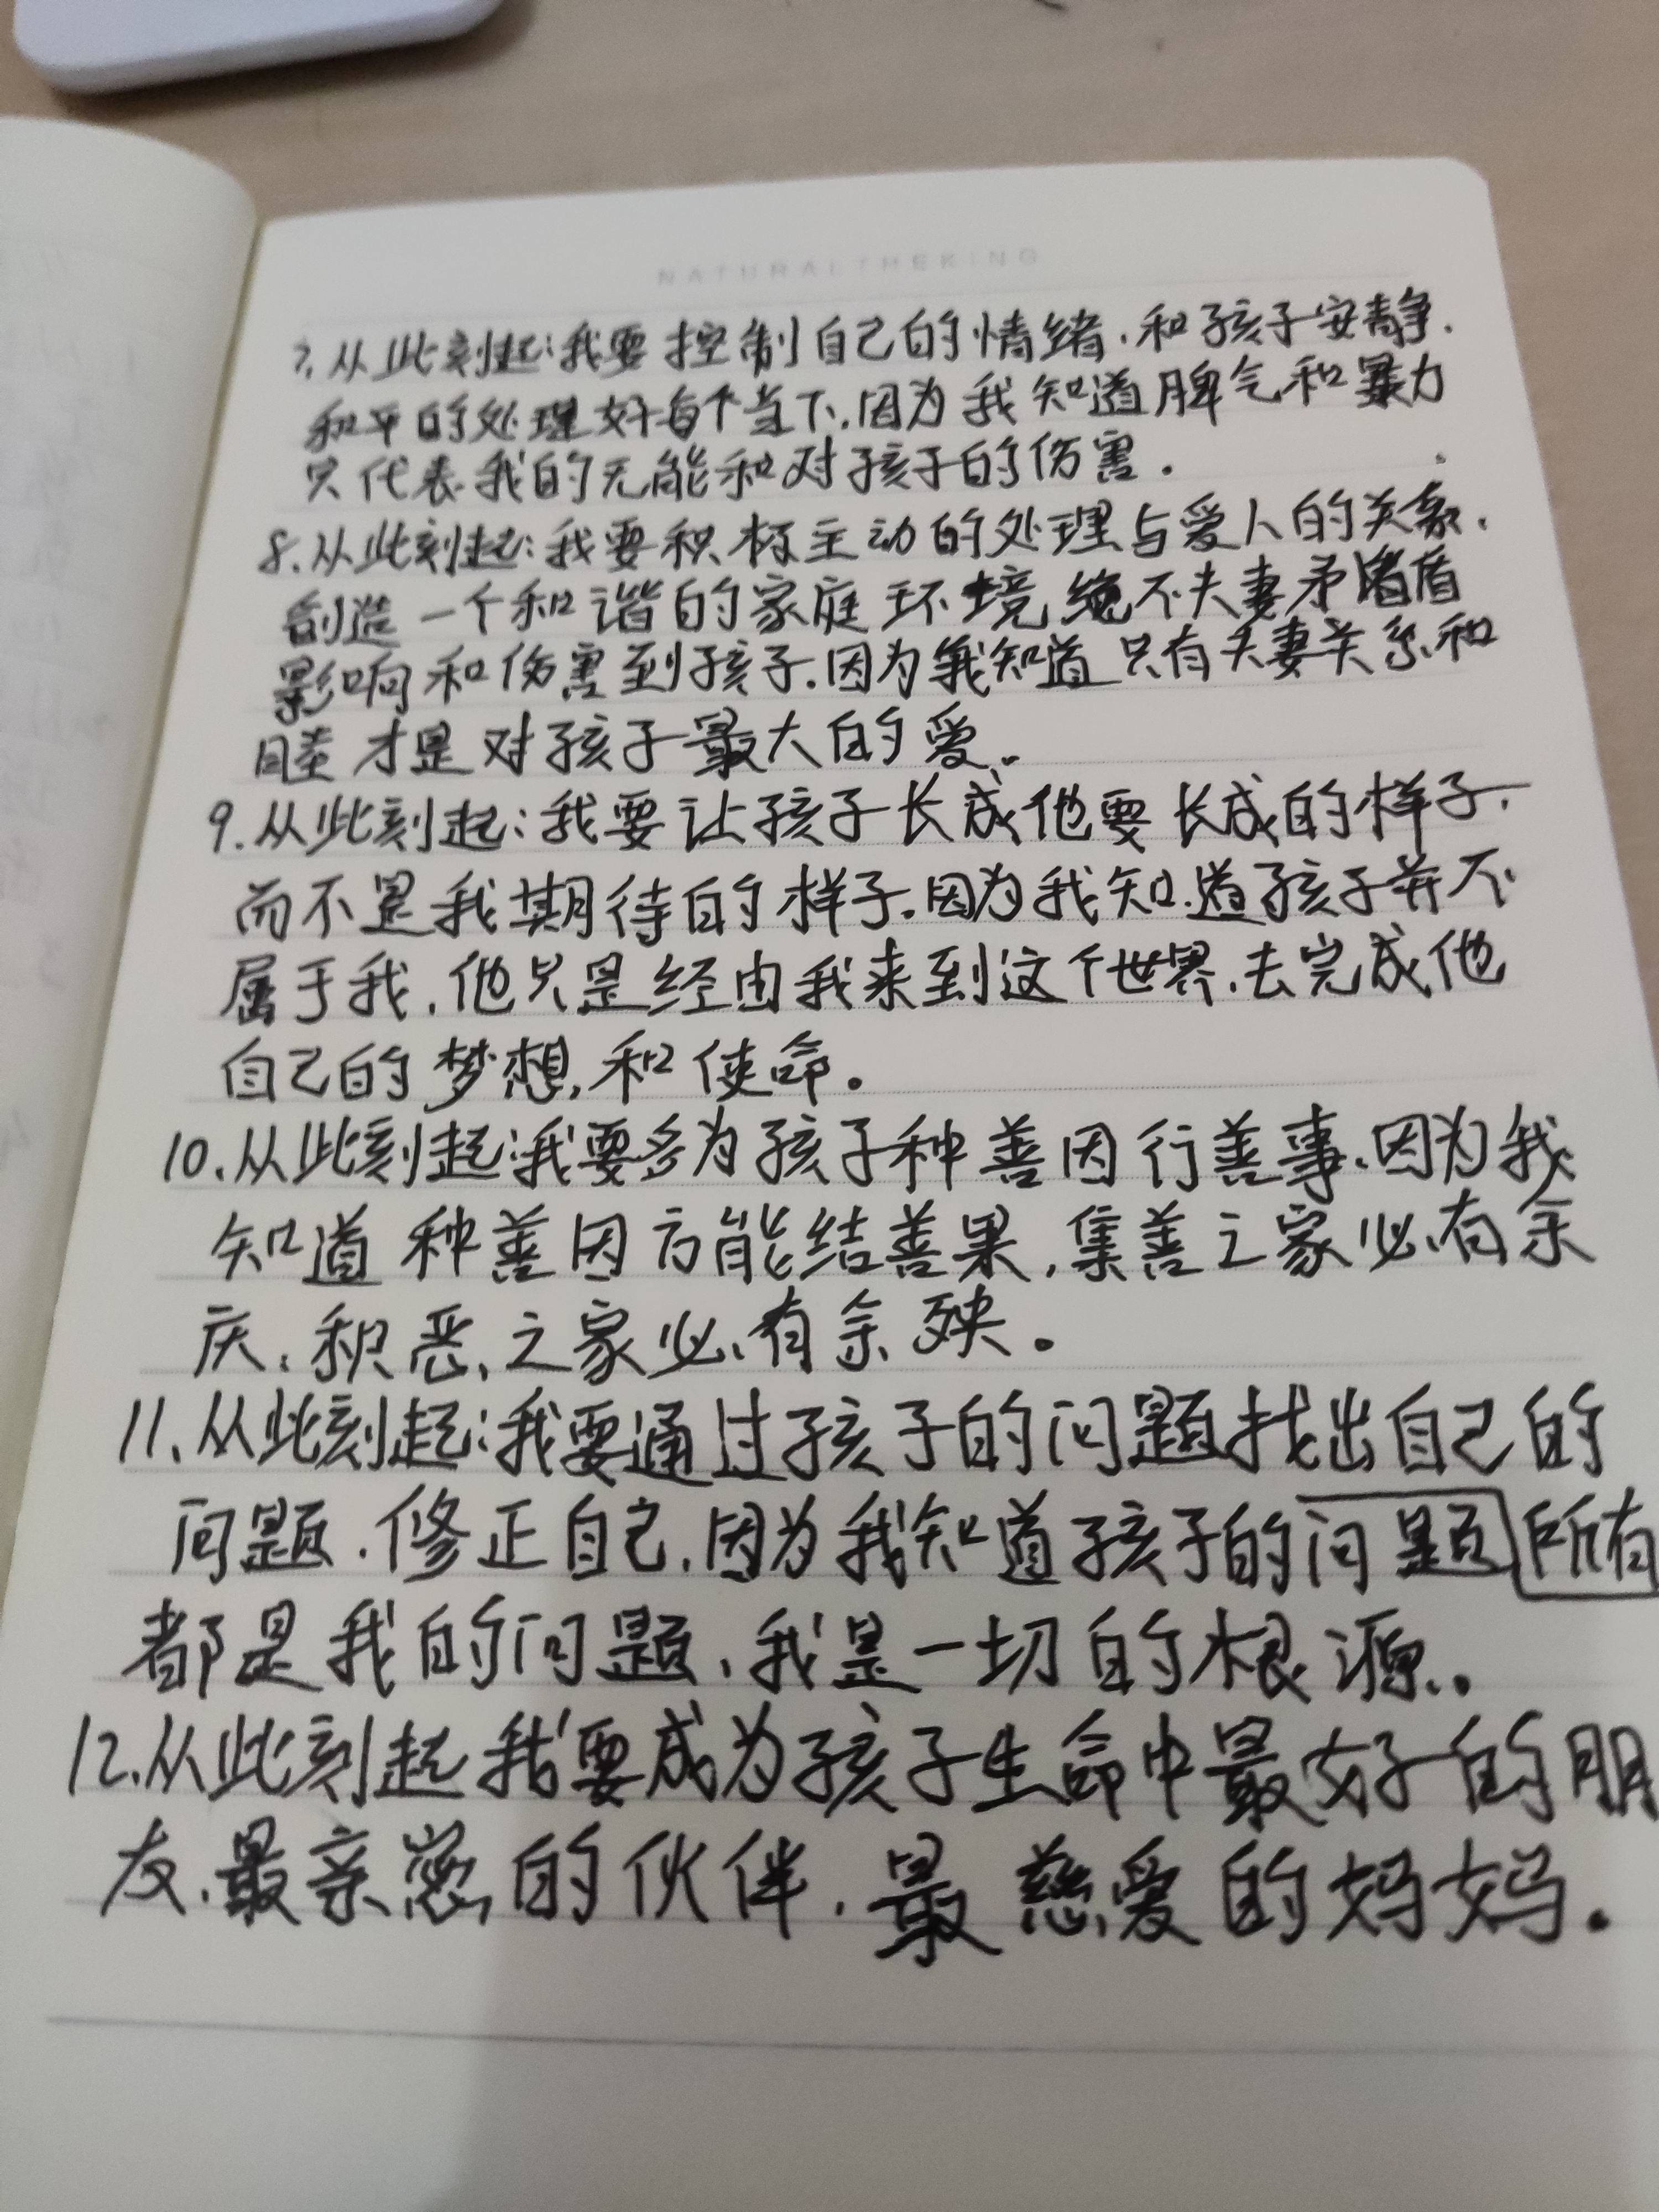 NATURALTHEKING
7.从此刻起:我要控制自己的情绪.和孩子安静.
和平的处理好每个当下.因为我知道脾气和暴力
只代表我的无能和对孩子的伤害.
8.从此刻起:我要积极主动的处理与爱人的关系.
创造一个和谐的家庭环境.绝不夫妻矛盾
影响和伤害到孩子.因为我知道只有夫妻关系和
睦才是对孩子最大的爱。
9.从此刻起:我要让孩子长成他要长成的样子.
而不是我期待的样子.因为我知道孩子并不
属于我.他只是经由我来到这个世界.去完成他
自己的梦想,和使命。
10.从此刻起:我要多为孩子种善因行善事.因为我
知道种善因方能结善果,集善之家必有余
庆,积恶之家必有余殃。
11.从此刻起:我要通过孩子的问题找出自己的
问题.修正自己.因为我知道孩子的问题所有
都是我的问题,我是一切的根源.。
12.从此刻起我要成为孩子生命中最好的朋
友.最亲密的伙伴.最慈爱的妈妈.